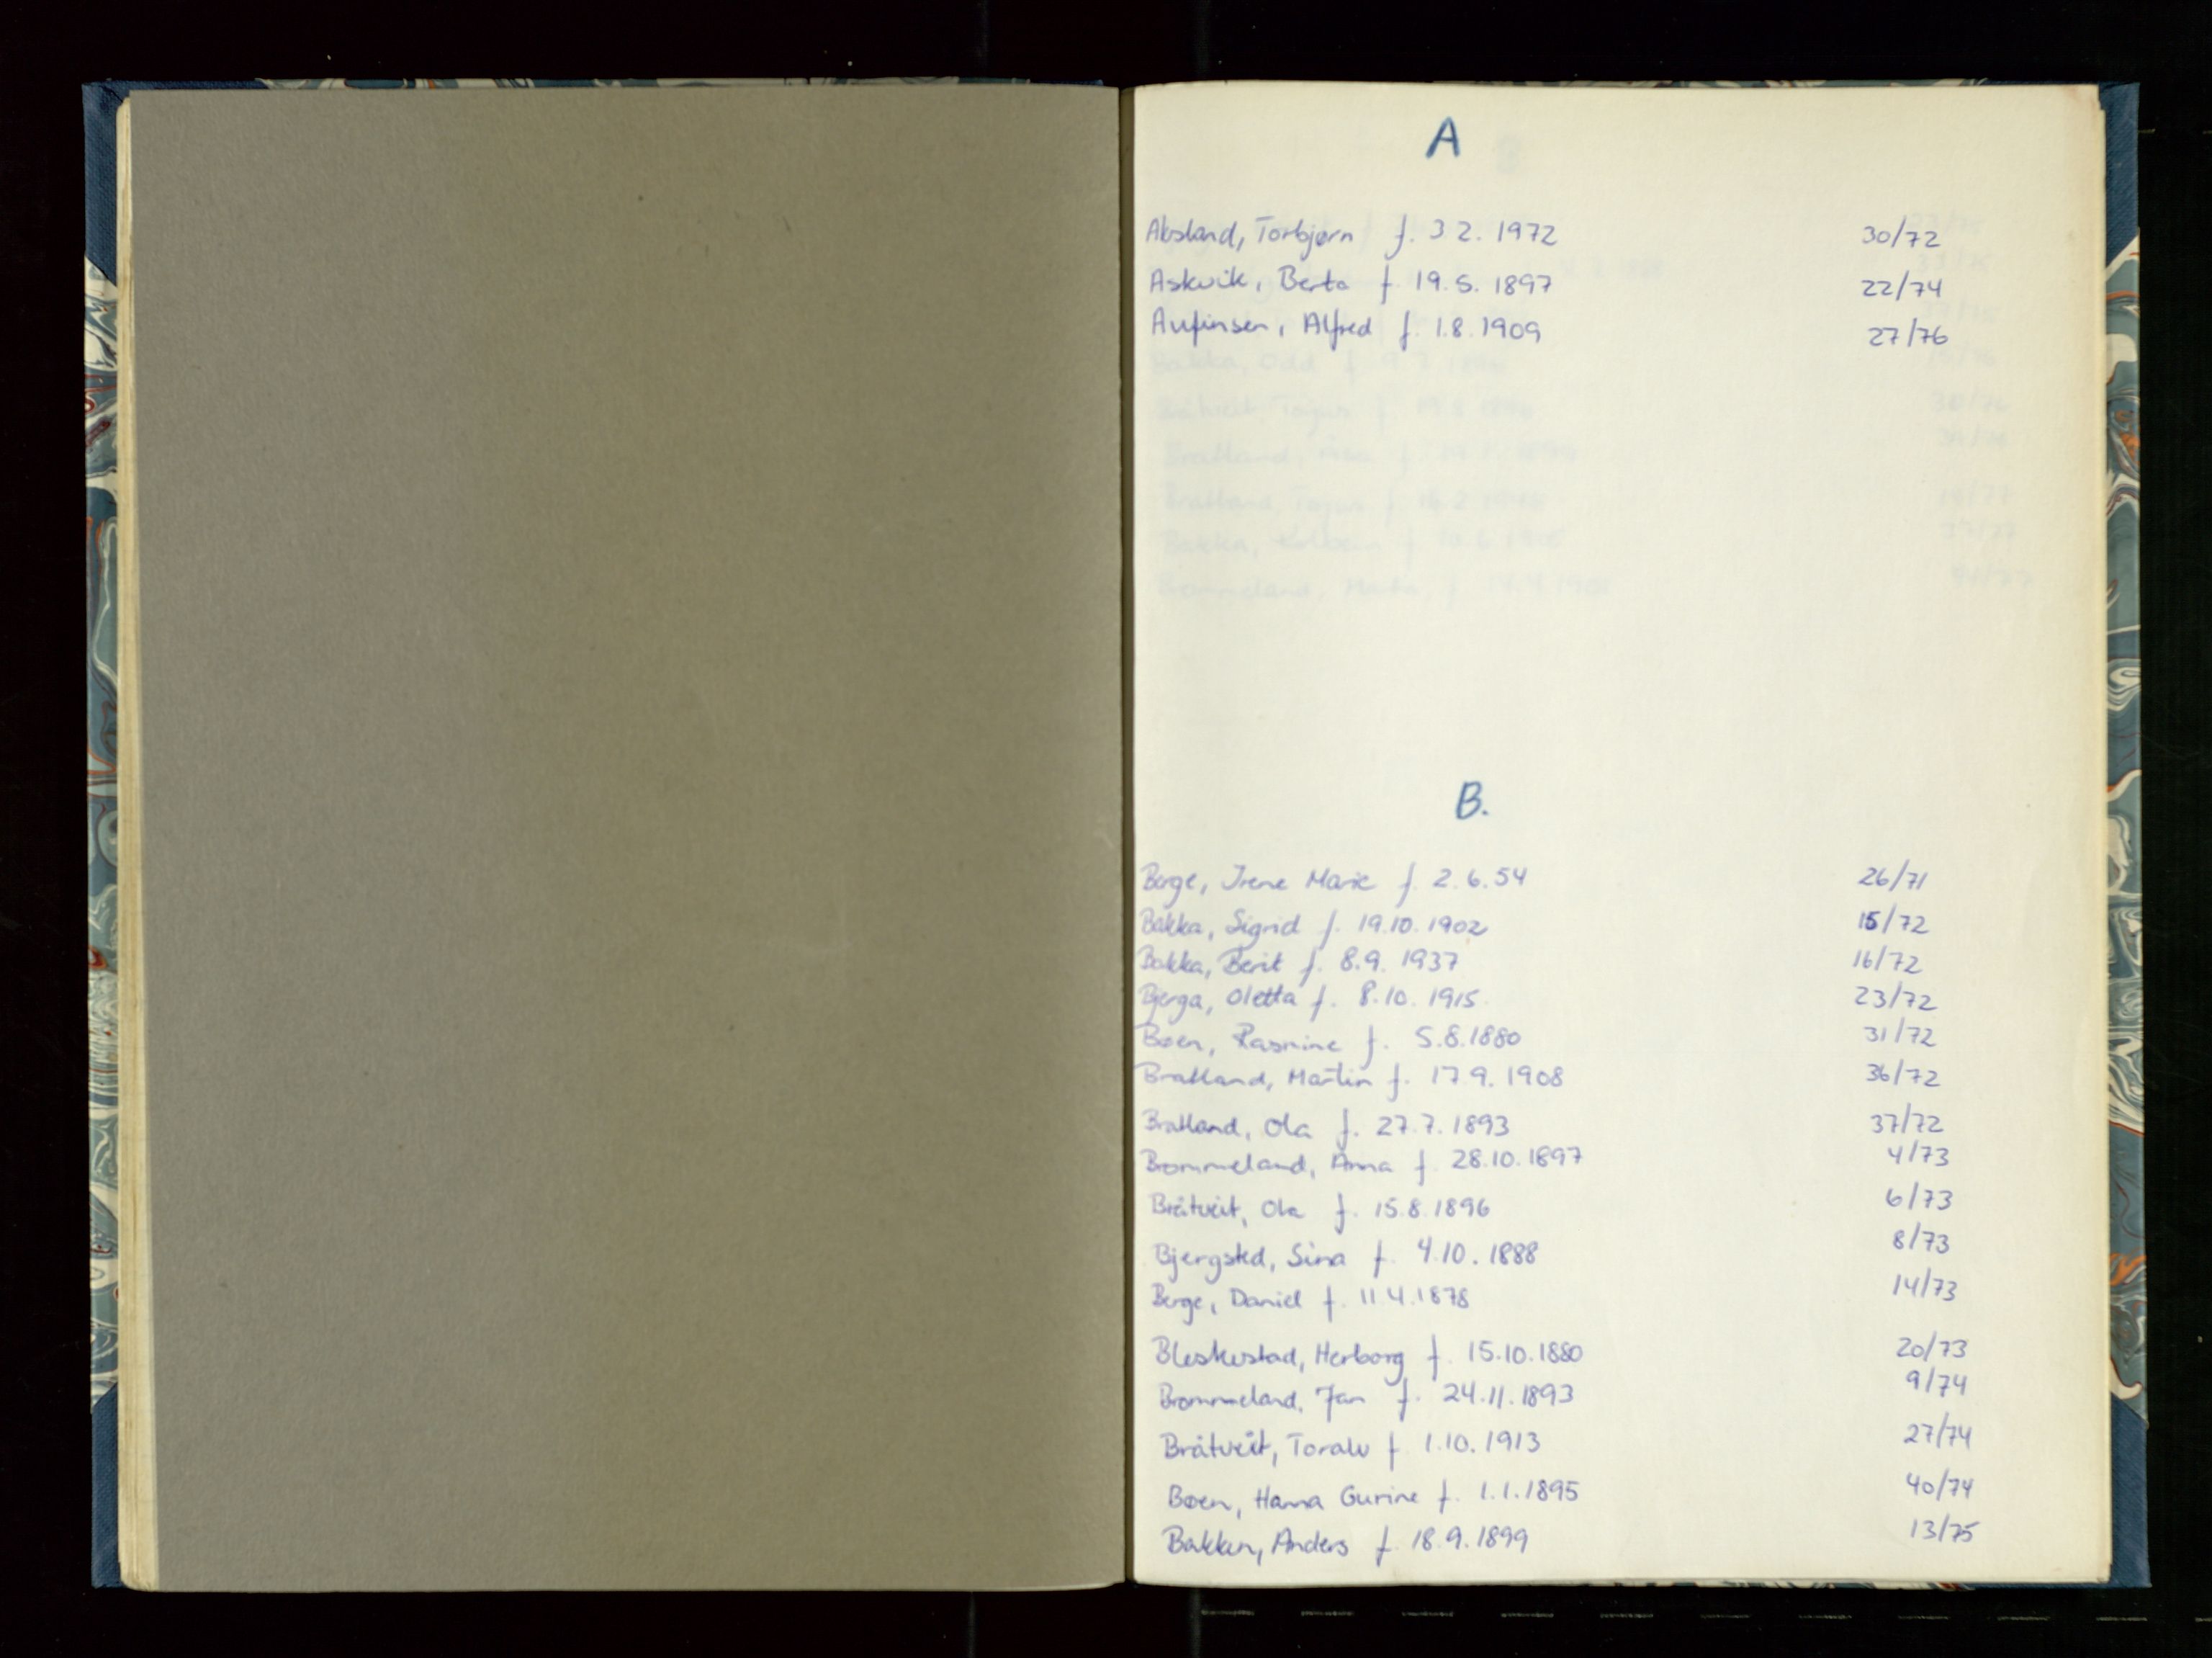 A
Absland, Torbjørn f. 3 2. 1972 30/72
Askvik, Berta f. 19. 5. 1897 22/74
Aufinsen, Alfred f. 1.8.1909 27/76
B.
Berge, Irene Marie f. 2.6.54 26/71
Bakka, Sigrid f. 19.10.1902 15/72
Bakka, Berit f. 8.9. 1937 16/72
Bjerga, Oletta f. 8.10. 1915 23/72
Bøen, Rasmine f. 5.8.1880 31/72
Bratland, Martin f. 17.9. 1908 36/72
Bratland, Ola f. 27.7.1893 37/72
Brommeland, Anna f. 28.10.1897 4/73
Bråtveit, Ola f. 15.8.1896 6/73
Bjergsted, Sina f. 4.10. 1888 8/73
Berge, Daniel f. 11.4.1878 14/73
Bleskestad, Herborg f. 15.10.1880 20/73
Brommeland, Jan f. 24.11.1893 9/74
Bråtveit, Toralv f. 1.10. 1913 27/74
Bøen, Hanna Gurine f. 1.1.1895 40/74
Bakken, Anders f. 18.9.1899 13/75